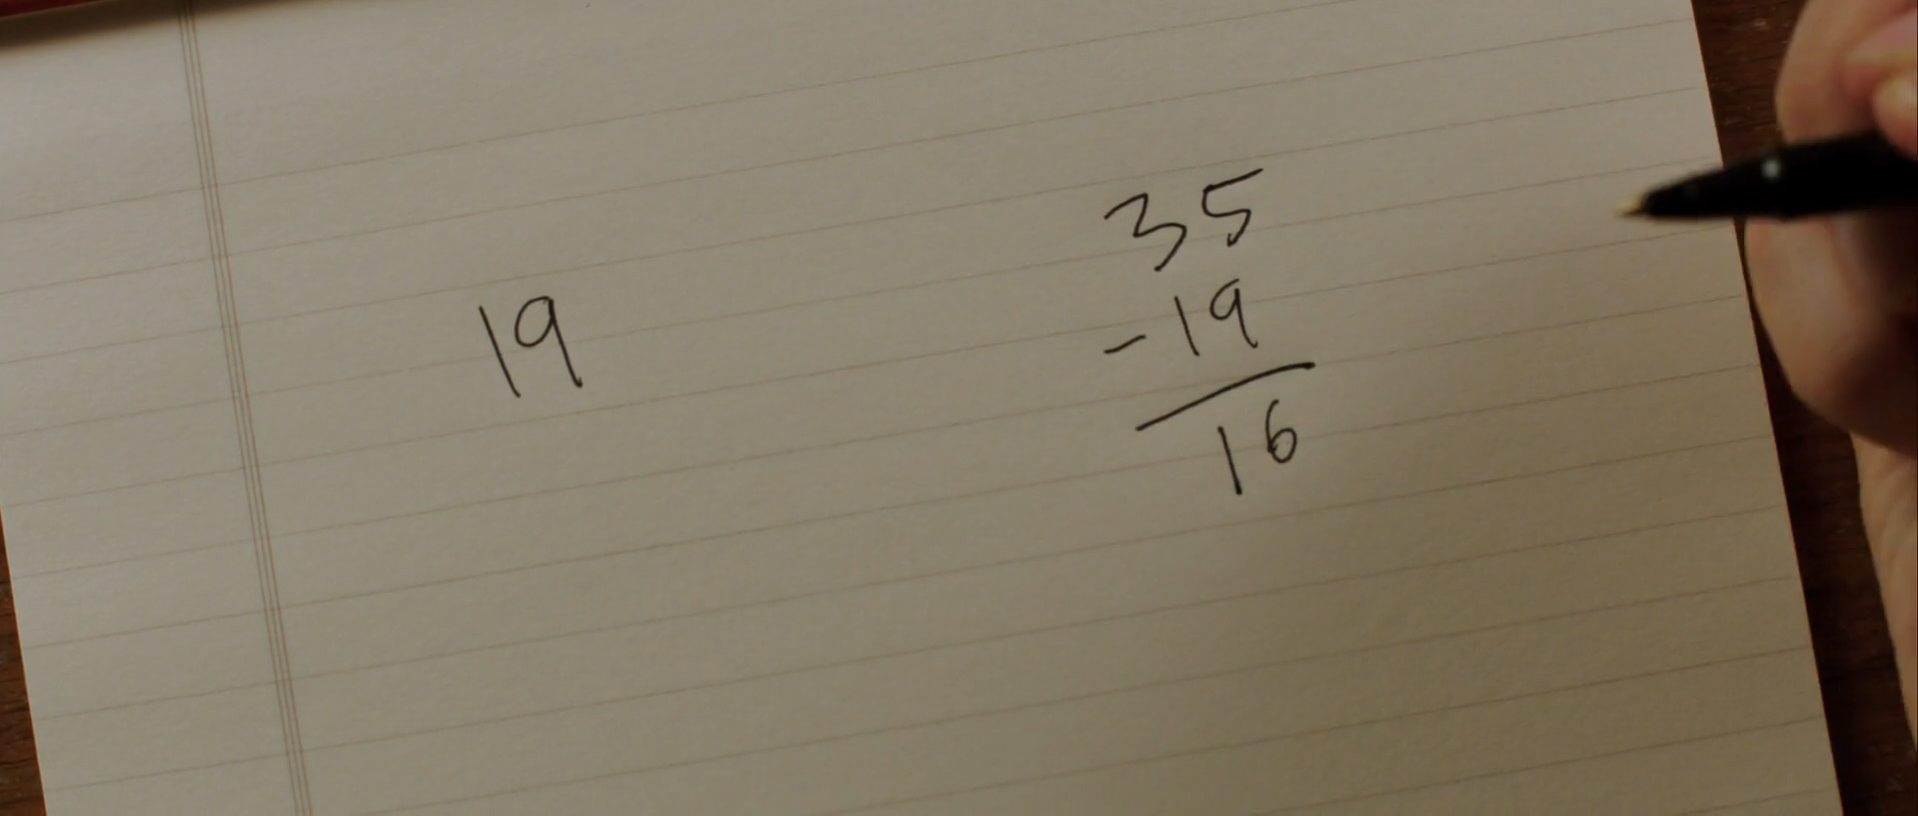 19
35
-19
16